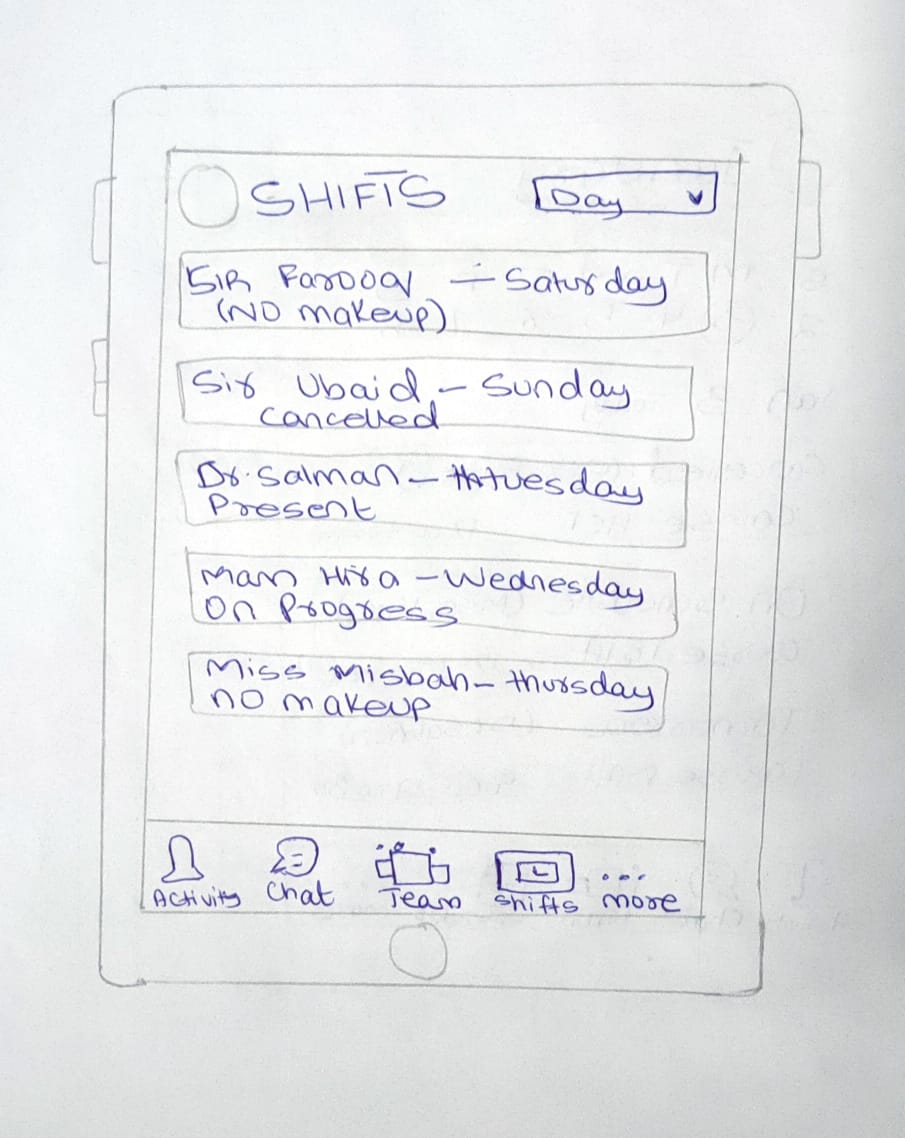 SHIFTS
Day
SIR Farooq - Saturday
(NO makeup)
Sir Ubaid - Sunday
Cancelled
Dr. Salman - thtuesday
Present
Mam Hira - Wednesday
On Progress
Miss Misbah - thursday
no makeup
Activity
Chat
Team
Shifts
... more